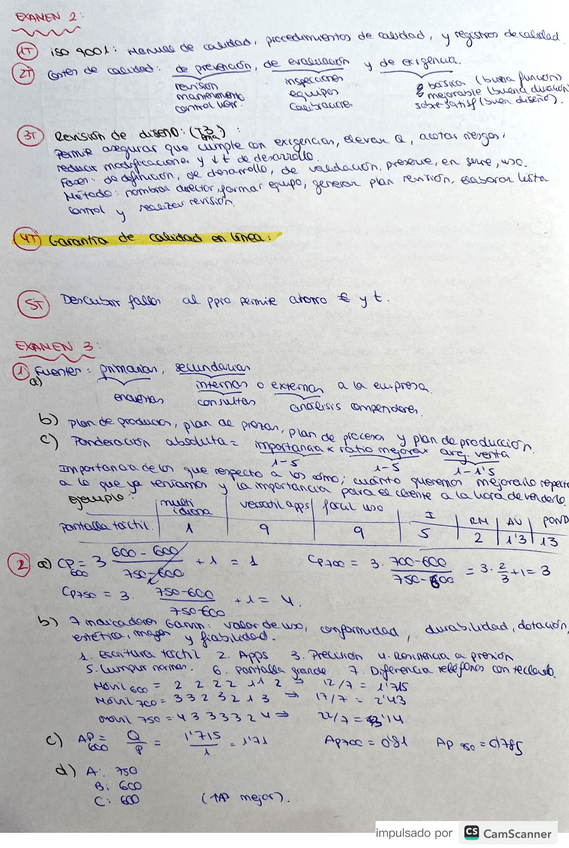 EXAMEN 2:
1T ISO 9001: Manual de calidad, procedimientos de calidad, y registros de calidad.
2T Costes de calidad: de prevención, de evaluación y de exigencia.
revisión inspecciones básica (buena función)
mantenimiento equipos mejorable (buena duración)
control calibración sobresatisf (buen diseño).
3T Revisión de diseño: :
Permite asegurar que cumple con exigencias, elevar Q, acotar riesgos,
reducir modificaciones y ↓t de desarrollo.
Fases: de definición, de desarrollo, de validación, preserie, en serie, uso.
Método: nombrar director, formar equipo, generar plan revisión, elaborar lista
control y realizar revisión.
4T Garantía de calidad en línea:
5T Descubrir fallos al ppio permite ahorro € y t.
EXAMEN 3:
1 Fuentes: primarias, secundarias
a) internas o externas a la empresa.
encuestas consultas análisis competidores.
b) plan de producto, plan de piezas, plan de procesos y plan de producción.
c) Ponderación absoluta = importancia x ratio mejora x arg. venta
1-5 1-5 1-1'5
Importancia de los que respecto a los cómo; cuánto queremos mejorarlo respecto
a lo que ya teníamos y la importancia para el cliente a la hora de venderlo.
ejemplo: multi idioma versatil apps fácil uso I RM AV POND
Pantalla táctil. 1 9 9 5 2 1'3 13
2 a) CP600 = 3 600-600 / 750-600 + 1 = 1 CP700 = 3 · 700-600 / 750-600 = 3 · 2/3 + 1 = 3
CP750 = 3 750-600 / 750-600 + 1 = 4.
b) 7 indicadores Garvin: valor de uso, conformidad, durabilidad, dotación,
estética, imagen y fiabilidad.
1. Escritura táctil 2. Apps 3. Precisión 4. Resistencia a presión
5. Cumplir normas. 6. Pantalla grande 7. Diferencia teléfonos con teclado.
Móvil 600 = 2 2 2 2 1 1 2 ⇒ 12/7 = 1'715
Móvil 700 = 3 3 2 3 2 1 3 ⇒ 17/7 = 2'43
Móvil 750 = 4 3 3 3 3 2 4 ⇒ 22/7 = 3'14
c) AP600 = Q/P = 1'715/1 = 1'71 AP700 = 0'81 AP750 = 0'785
d) A: 750
B: 600
C: 600 (↑AP mejor).
impulsado por CS CamScanner